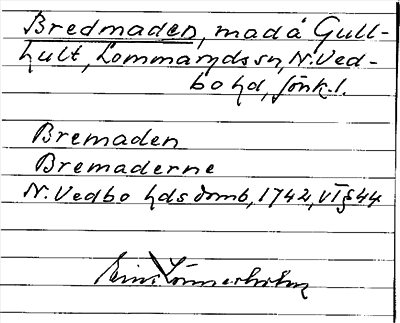 Bredmaden, mad å Gull-
hult, Lommarydssn, N. Ved-
bo hd, Jönk. l.
Bremaden
Bremaderne
N. Vedbo hds domb, 1742, VI § 44